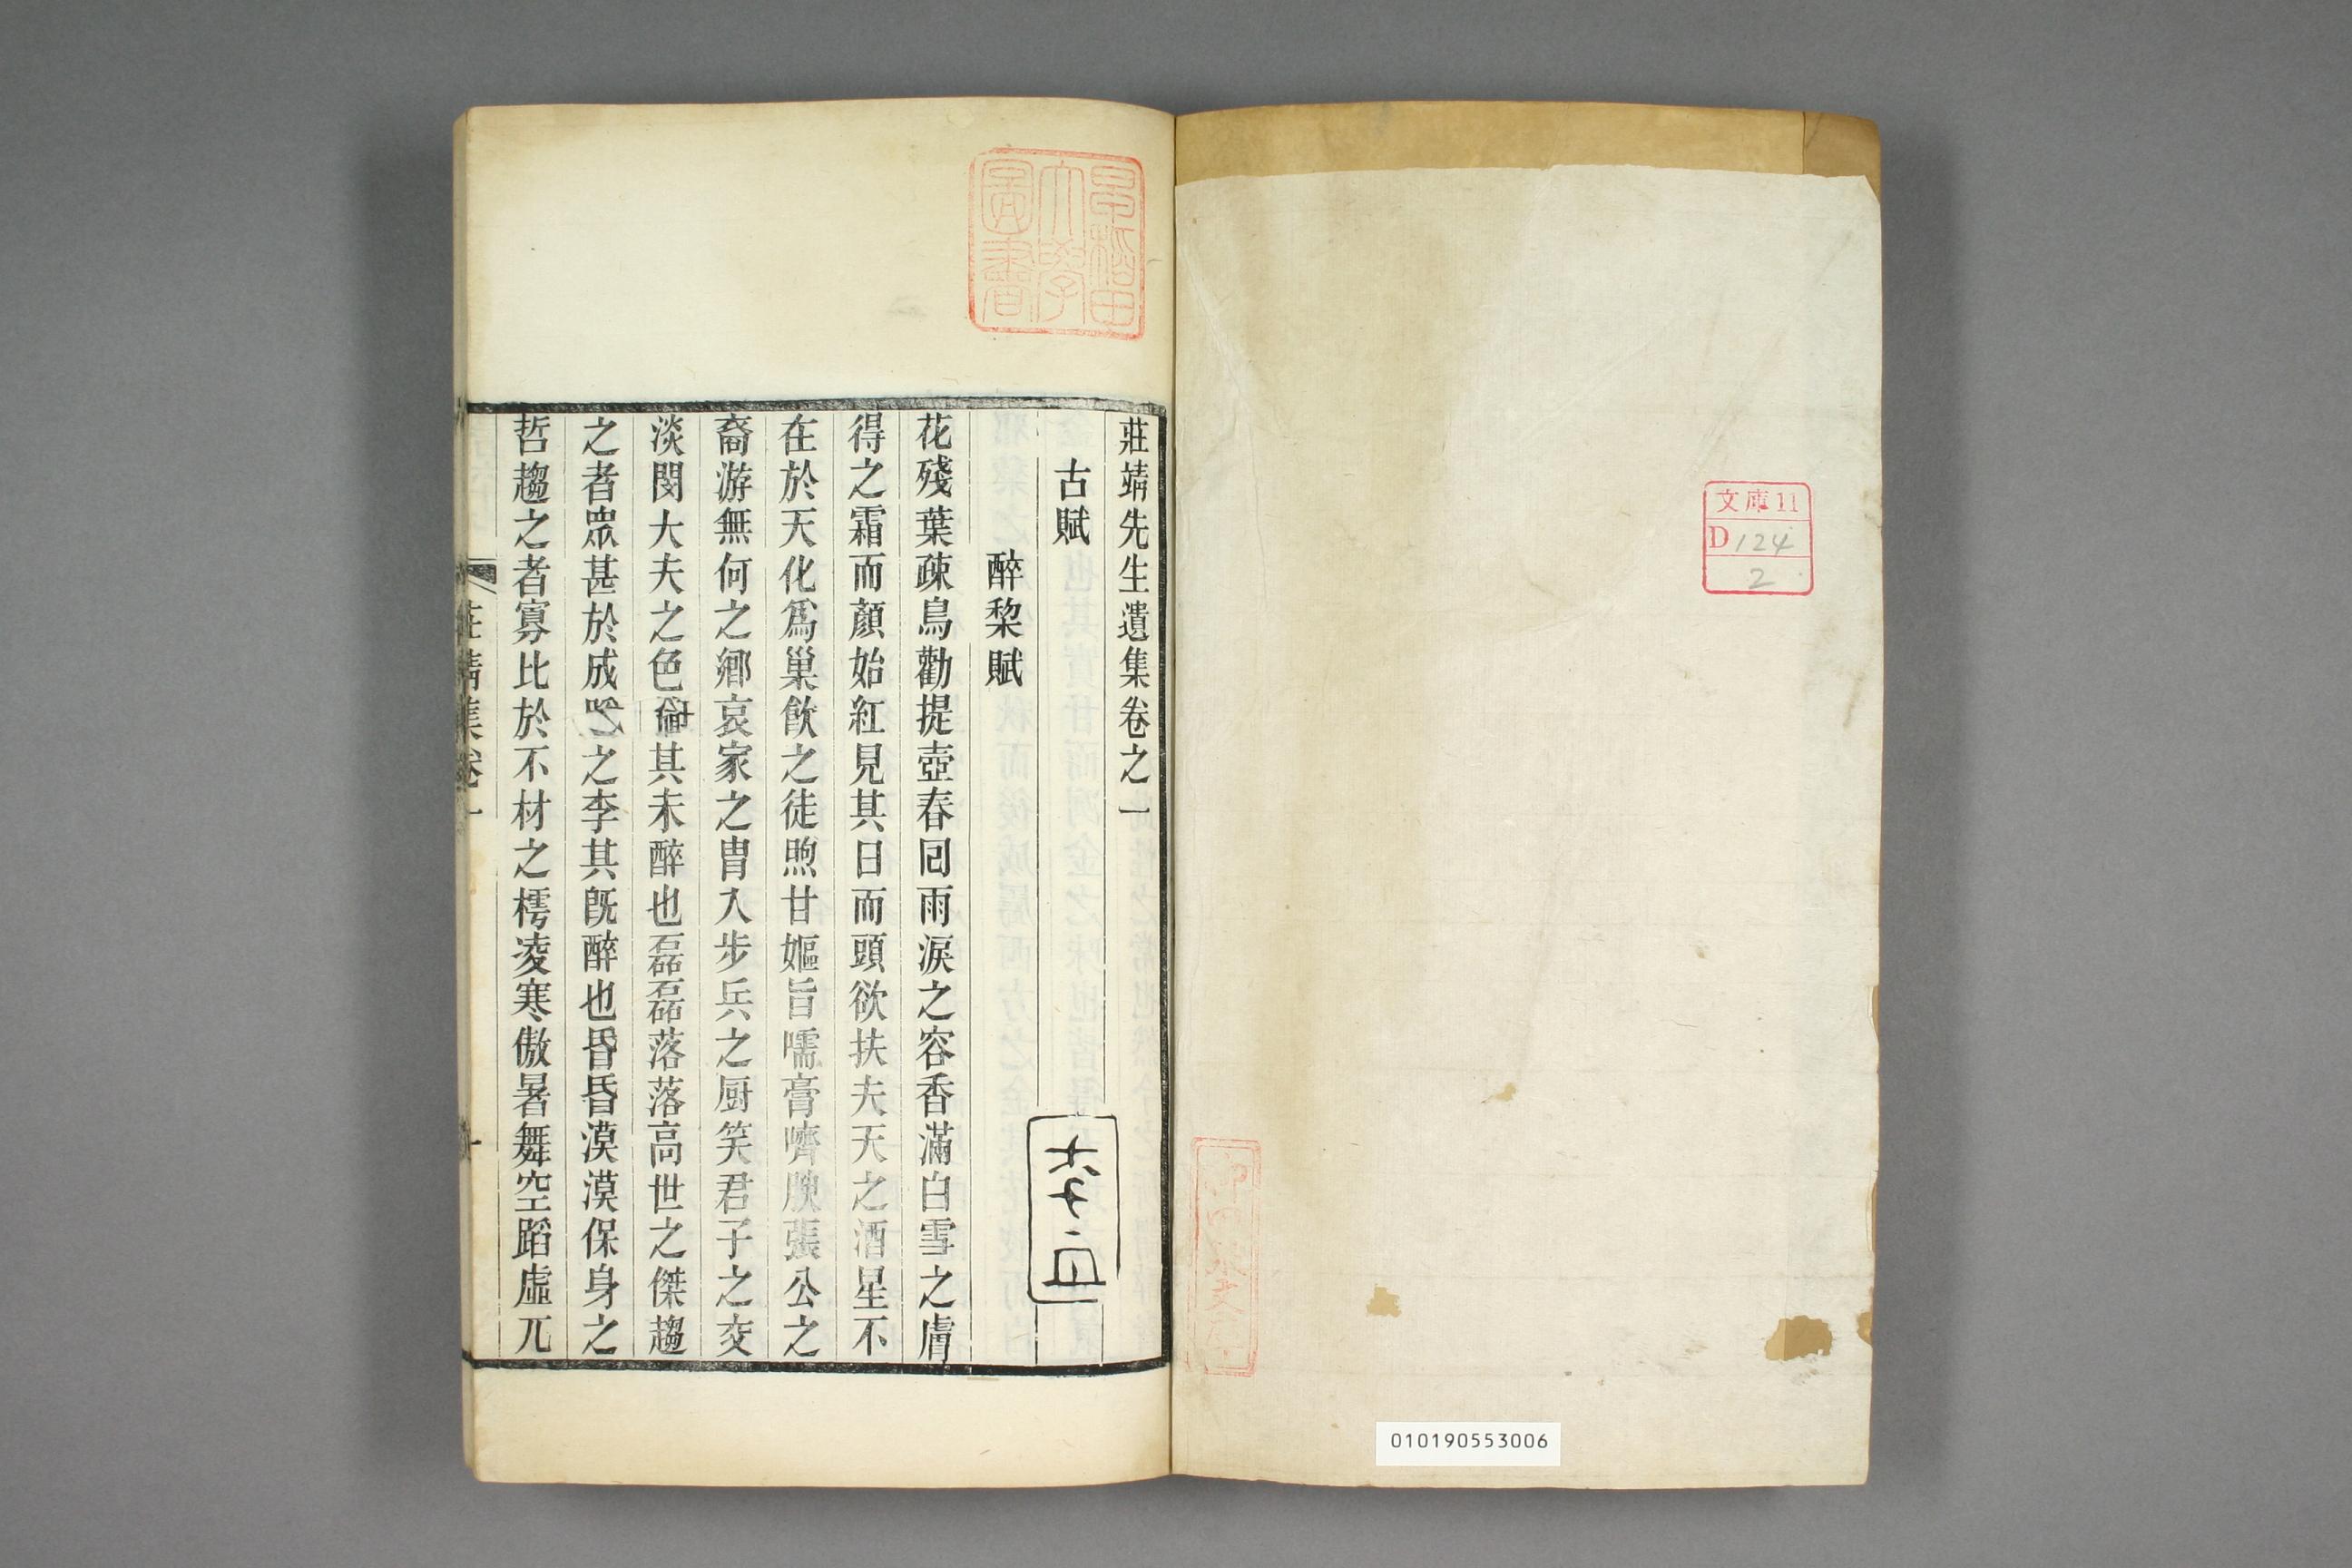 文庫11
D124
2
010190553006
早稲田
大學
圖書
莊靖先生遺集卷之一
古賦
醉棃賦
花殘葉疎鳥勸提壺春囘雨淚之容香滿白雪之膚
得之霜而顏始紅見其日而頭欲扶夫天之酒星不
在於天化爲巢飲之徒煦甘嫗旨嚅膏嚌腴張公之
裔游無何之鄉哀家之胄入步兵之厨笑君子之交
淡閔大夫之色其未醉也磊磊落落高世之傑趨
之者眾甚於成之李其旣醉也昏昏漠漠保身之
哲趨之者寡比於不材之樗凌寒傲暑舞空蹈虛兀
莊靖集卷一
一